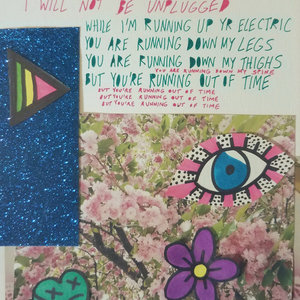 I WILL NOT BE UNPLUGGED
WHILE I'M RUNNING UP YR ELECTRIC
YOU ARE RUNNING DOWN MY LEGS
YOU ARE RUNNING DOWN MY THIGHS
YOU ARE RUNNING DOWN MY SPINE
BUT YOU'RE RUNNING OUT OF TIME
BUT YOU'RE RUNNING OUT OF TIME
BUT YOU'RE RUNNING OUT OF TIME
BUT YOU'RE RUNNING OUT OF TIME